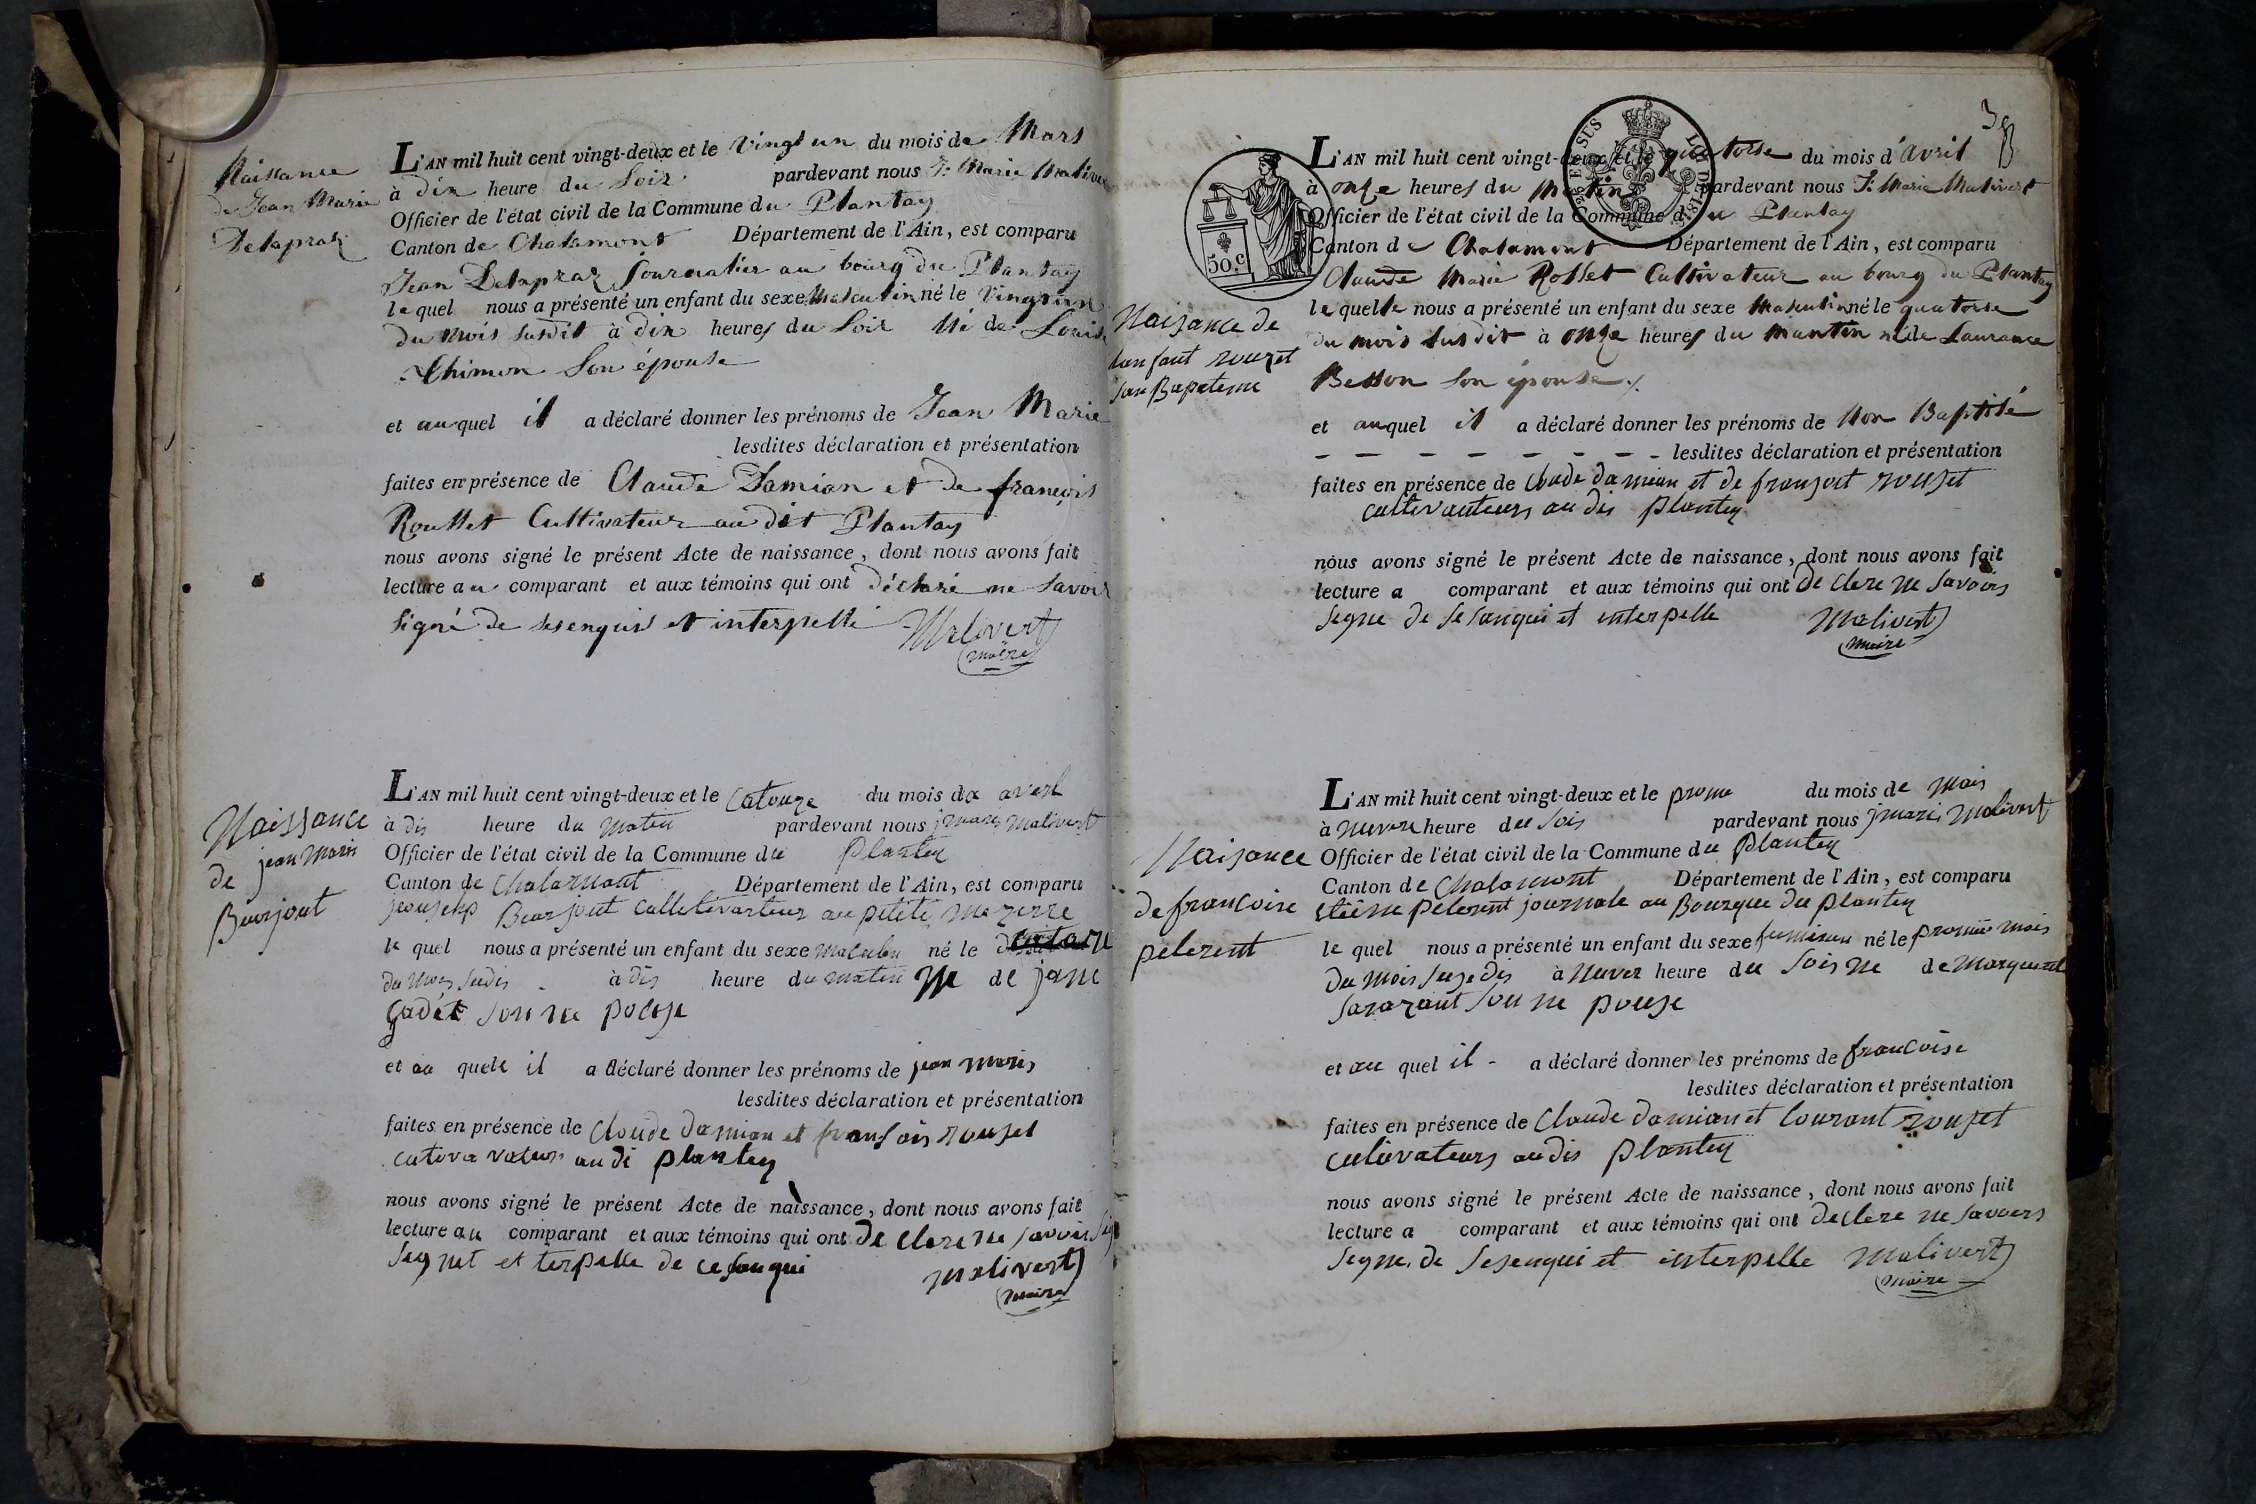 Naissance
de Jean Marie
Delapraz
L'AN mil huit cent vingt-deux et le vingt un du mois de Mars
à dix heure du Soir pardevant nous Jn Marie Malivert
Officier de l'état civil de la Commune du Plantay
Canton de Chalamont Département de l'Ain, est comparu
Jean Delapraz Journalier au bourg du Plantay
le quel nous a présenté un enfant du sexe Masculin né le vingt un
du mois susdit à dix heures du Soir né de Louise
Thimon Son épouse
et au quel il a déclaré donner les prénoms de Jean Marie
lesdites déclaration et présentation
faites en présence de Claude Damian et de françois
Rousset Cultivateur au dit Plantay
nous avons signé le présent Acte de naissance, dont nous avons fait
lecture au comparant et aux témoins qui ont déclaré ne Savoir
Signé de sesenquis et interpellé Malivert
maire
Naissance
de jean Marie
Bourjout
L'AN mil huit cent vingt-deux et le Catouze du mois da avril
à dis heure du maten pardevant nous jmaris Malivert
Officier de l'état civil de la Commune du Plantey
Canton de Chalamont Département de l'Ain, est comparu
Bourjout au petite
le quel nous a présenté un enfant du sexe né le
du Mois Sudis à dis heure du maten ne de jane
Gadét Son ne pouse
et au quele il a déclaré donner les prénoms de jean maris
lesdites déclaration et présentation
faites en présence de Cloude damian et fransois rouset
au di plantey
nous avons signé le présent Acte de naissance, dont nous avons fait
lecture au comparant et aux témoins qui ont de clere ne savoir
Segnet et terpelle de ce sanqui Malivert
maire
39
L'AN mil huit cent vingt-deux et le quatorse du mois d'avril
à onze heures du Matin pardevant nous Jn Marie Malivert
Officier de l'état civil de la Commune du Plantay
Canton de Chalamont Département de l'Ain, est comparu
50.c
Claude Marie Rosset Cultivateur au bourg du Plantay
le quelle nous a présenté un enfant du sexe Masculin né le quatorse
du mois susdit à onze heures du mantin né de Laurance
Besson Son épouse
Naisance de
lanfant rouzet
san Bapteme
et auquel il a déclaré donner les prénoms de Non Baptisé
lesdites déclaration et présentation
faites en présence de Cloude damian et de fransoit rouset
cultivauteurs au dis plantey
nous avons signé le présent Acte de naissance, dont nous avons fait
lecture a comparant et aux témoins qui ont de clere ne savoirs
Segne de Sesanqui et interpelle Malivert
maire
Naisance
de francoise
pelerent
L'AN mil huit cent vingt-deux et le du mois de Mais
à heure du Sois pardevant nous jmaris Malivert
Officier de l'état civil de la Commune du Plantey
Canton de Chalamont Département de l'Ain, est comparu
pelerent journale au Bourgue du plantey
le quel nous a présenté un enfant du sexe né le mois
du mois à heure du Sois ne de
Son ne pouse
et au quel il a déclaré donner les prénoms de francoise
lesdites déclaration et présentation
faites en présence de Cloude damian et Lourant rouset
culivateurs au dis plantey
nous avons signé le présent Acte de naissance, dont nous avons fait
lecture a comparant et aux témoins qui ont declere ne savoirs
Segne de Sesenqui et interpelle Malivert
maire